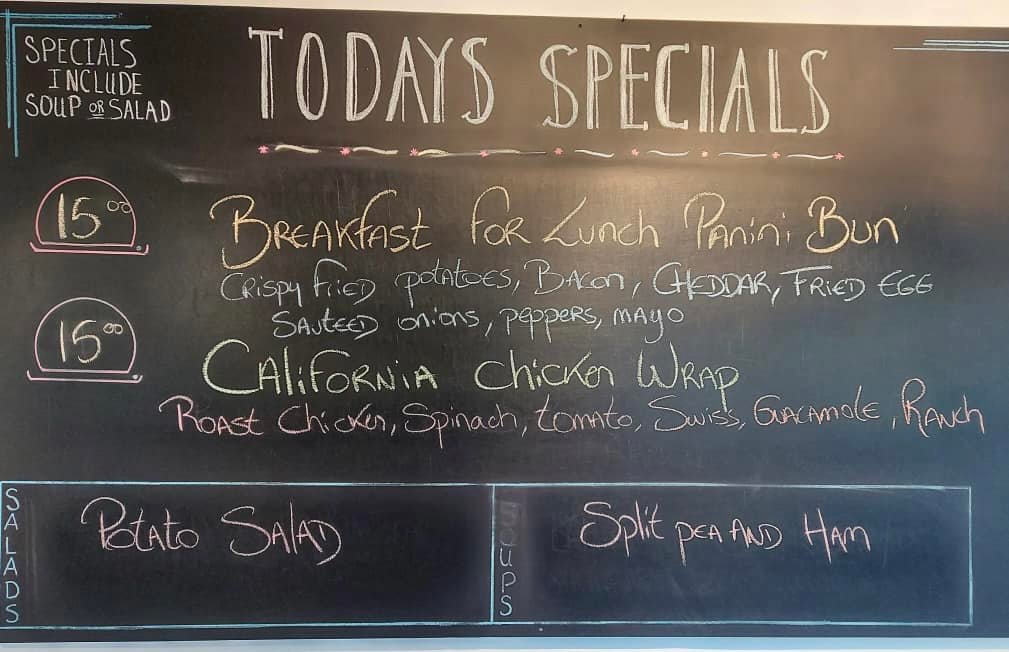 SPECIALS
INCLUDE
SOUP OR SALAD
TODAYS SPECIALS
15.00
BREAKFAST FOR LUNCH PANINI BUN
CRISPY FRIED POTATOES, BACON, CHEDDAR, FRIED EGG
SAUTEED ONIONS, PEPPERS, MAYO
15.00
CALIFORNIA CHICKEN WRAP
ROAST CHICKEN, SPINACH, TOMATO, SWISS, GUACAMOLE, RANCH
SALADS
POTATO SALAD
SOUPS
SPLIT PEA AND HAM